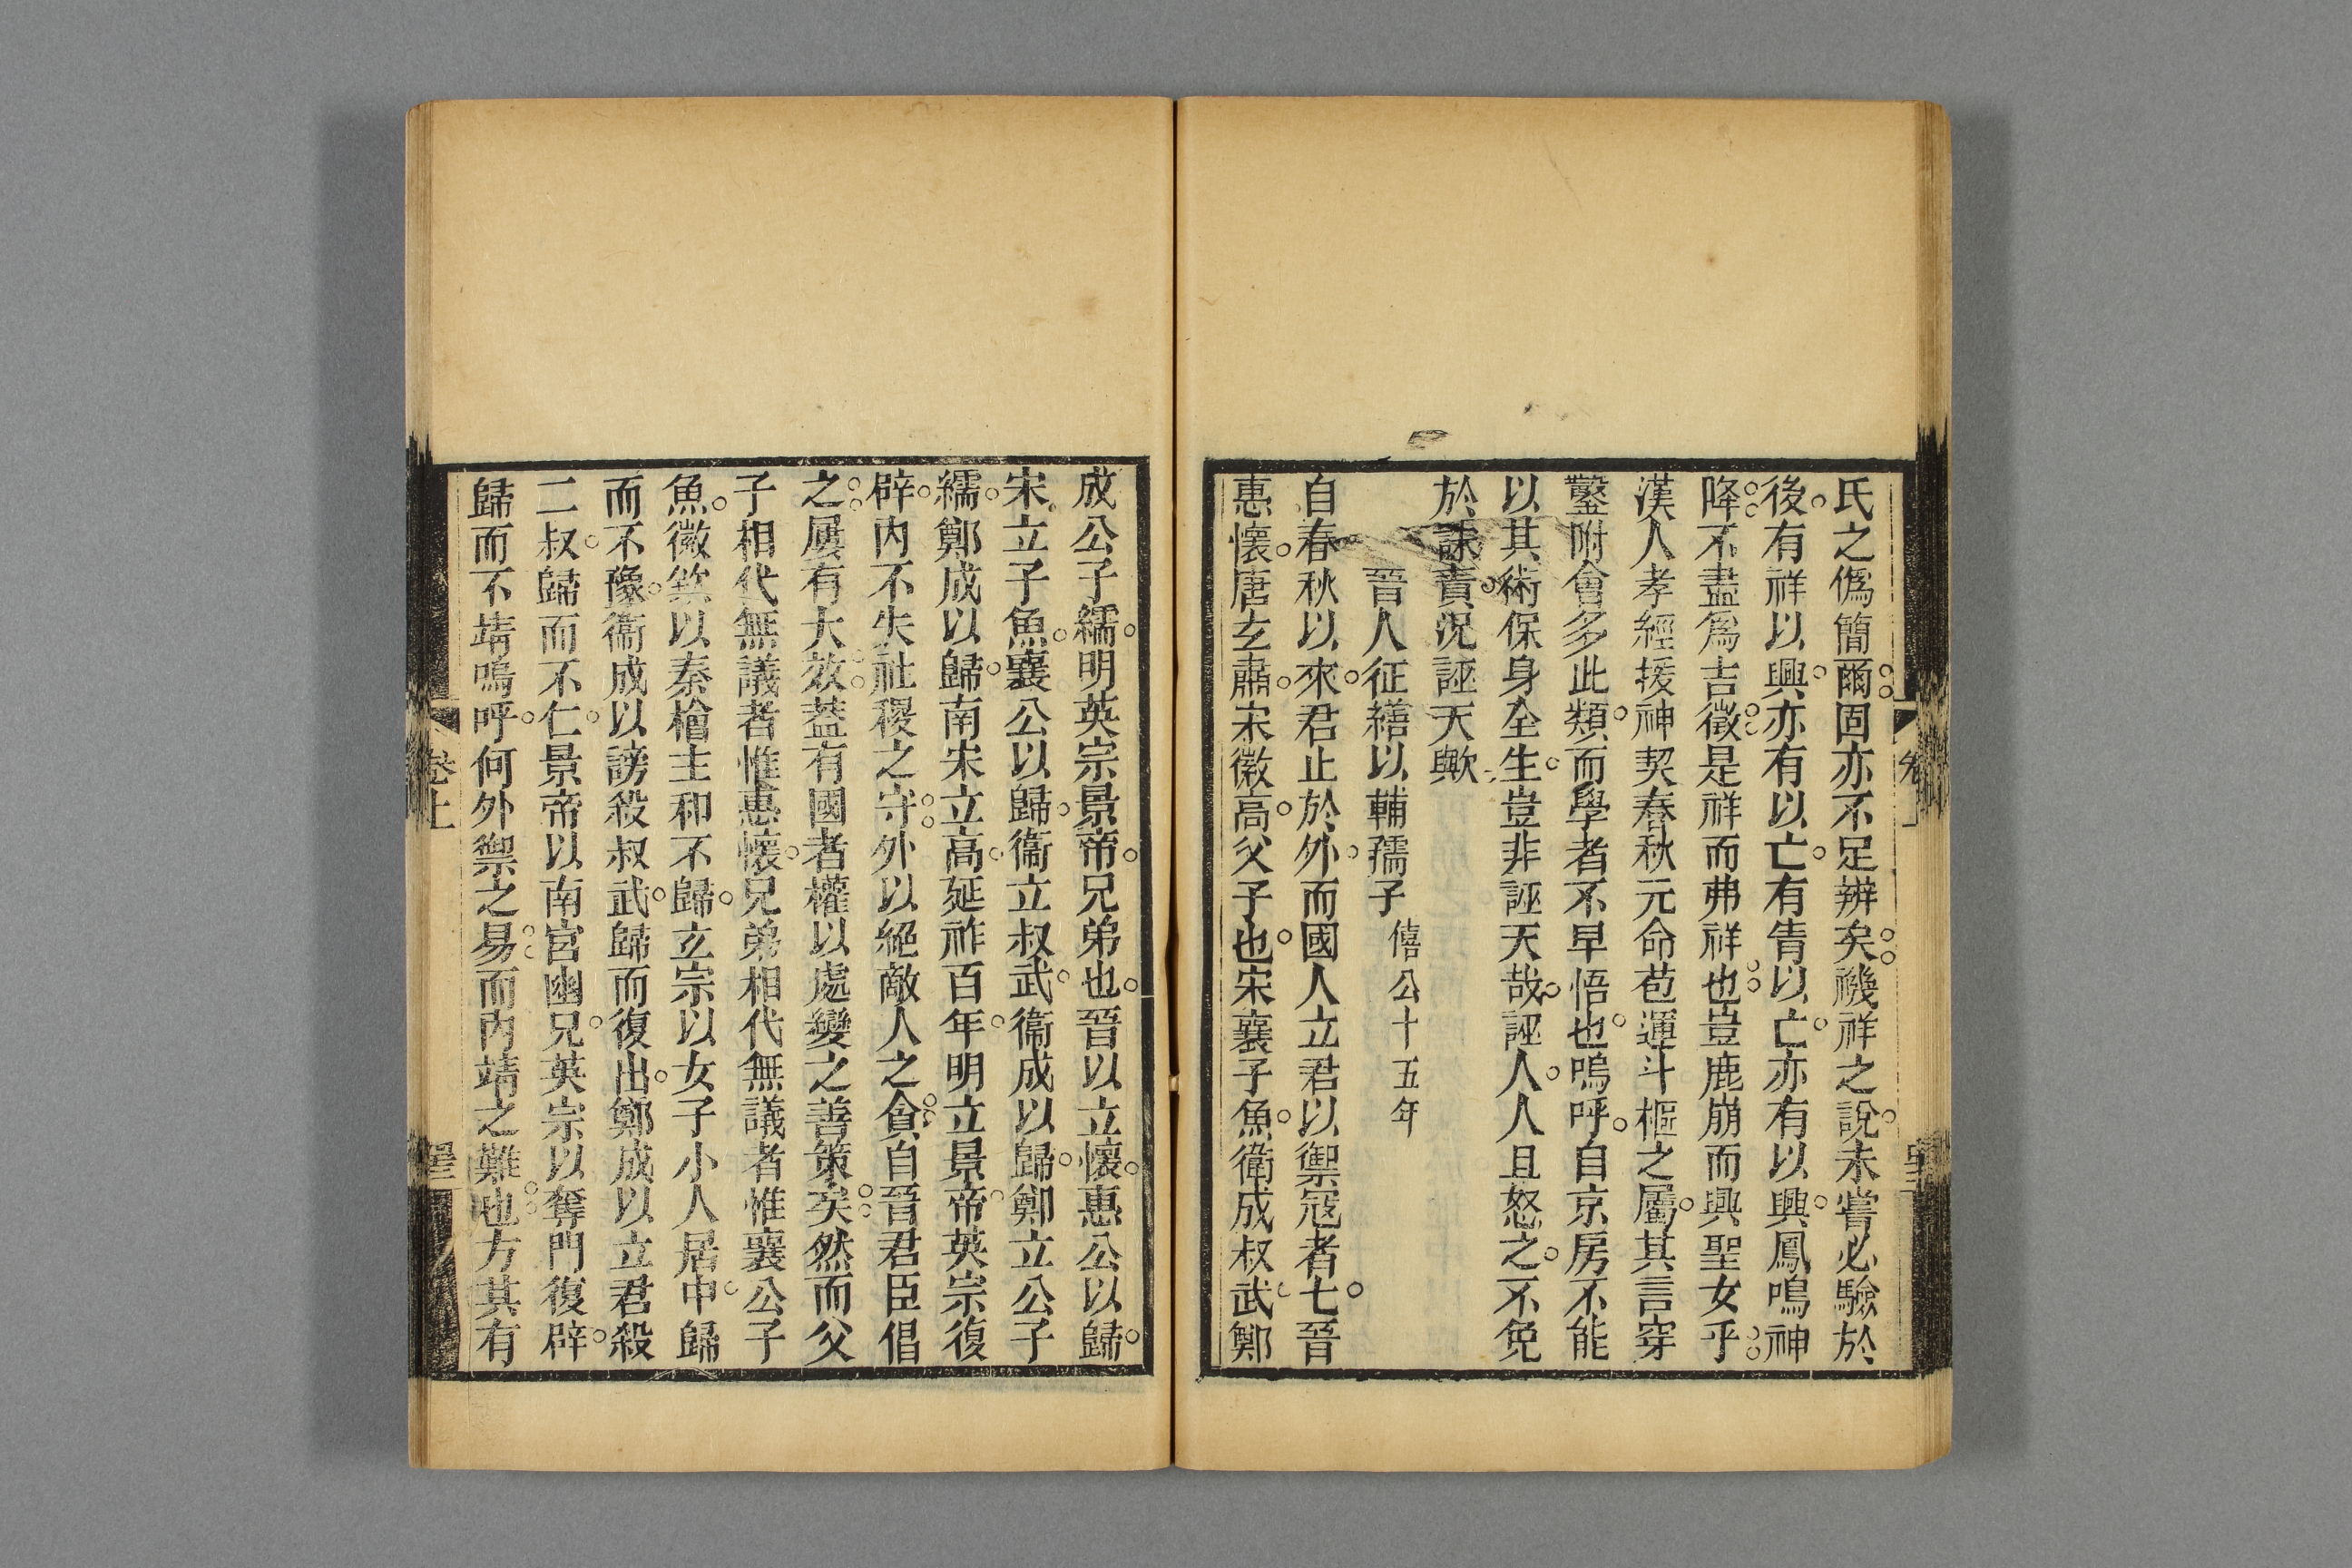 氏之僞簡爾固亦不足辨矣禨祥之說未嘗必驗於
後有祥以興亦有以亡有眚以亡亦有以興鳳鳴神
降不盡爲吉徵是祥而弗祥也豈鹿崩而興聖女乎
漢人孝經援神契春秋元命苞運斗樞之屬其言穿
鑿附會多此類而學者不早悟也嗚呼自京房不能
以其術保身全生豈非誣天哉誣人人且怒之不免
於誅責況誣天歟
晉人征繕以輔孺子 僖公十五年
自春秋以來君止於外而國人立君以禦寇者七晉
惠懷唐玄肅宋徽高父子也宋襄子魚衛成叔武鄭
成公子繻明英宗景帝兄弟也晉以立懷惠公以歸
宋立子魚襄公以歸衞立叔武衞成以歸鄭立公子
繻鄭成以歸南宋立高延祚百年明立景帝英宗復
辟內不失社稷之守外以絕敵人之貪自晉君臣倡
之屢有大效蓋有國者權以處變之善策矣然而父
子相代無議者惟惠懷兄弟相代無議者惟襄公子
魚徽欽以秦檜主和不歸玄宗以女子小人居中歸
而不豫衞成以謗殺叔武歸而復出鄭成以立君殺
二叔歸而不仁景帝以南宮幽兄英宗以奪門復辟
歸而不靖嗚呼何外禦之易而內靖之難也方其有
卷上